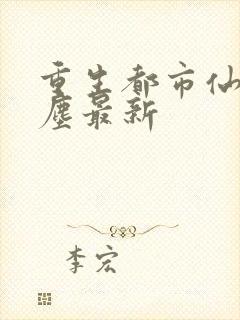 重生都市仙
塵最新
李宏